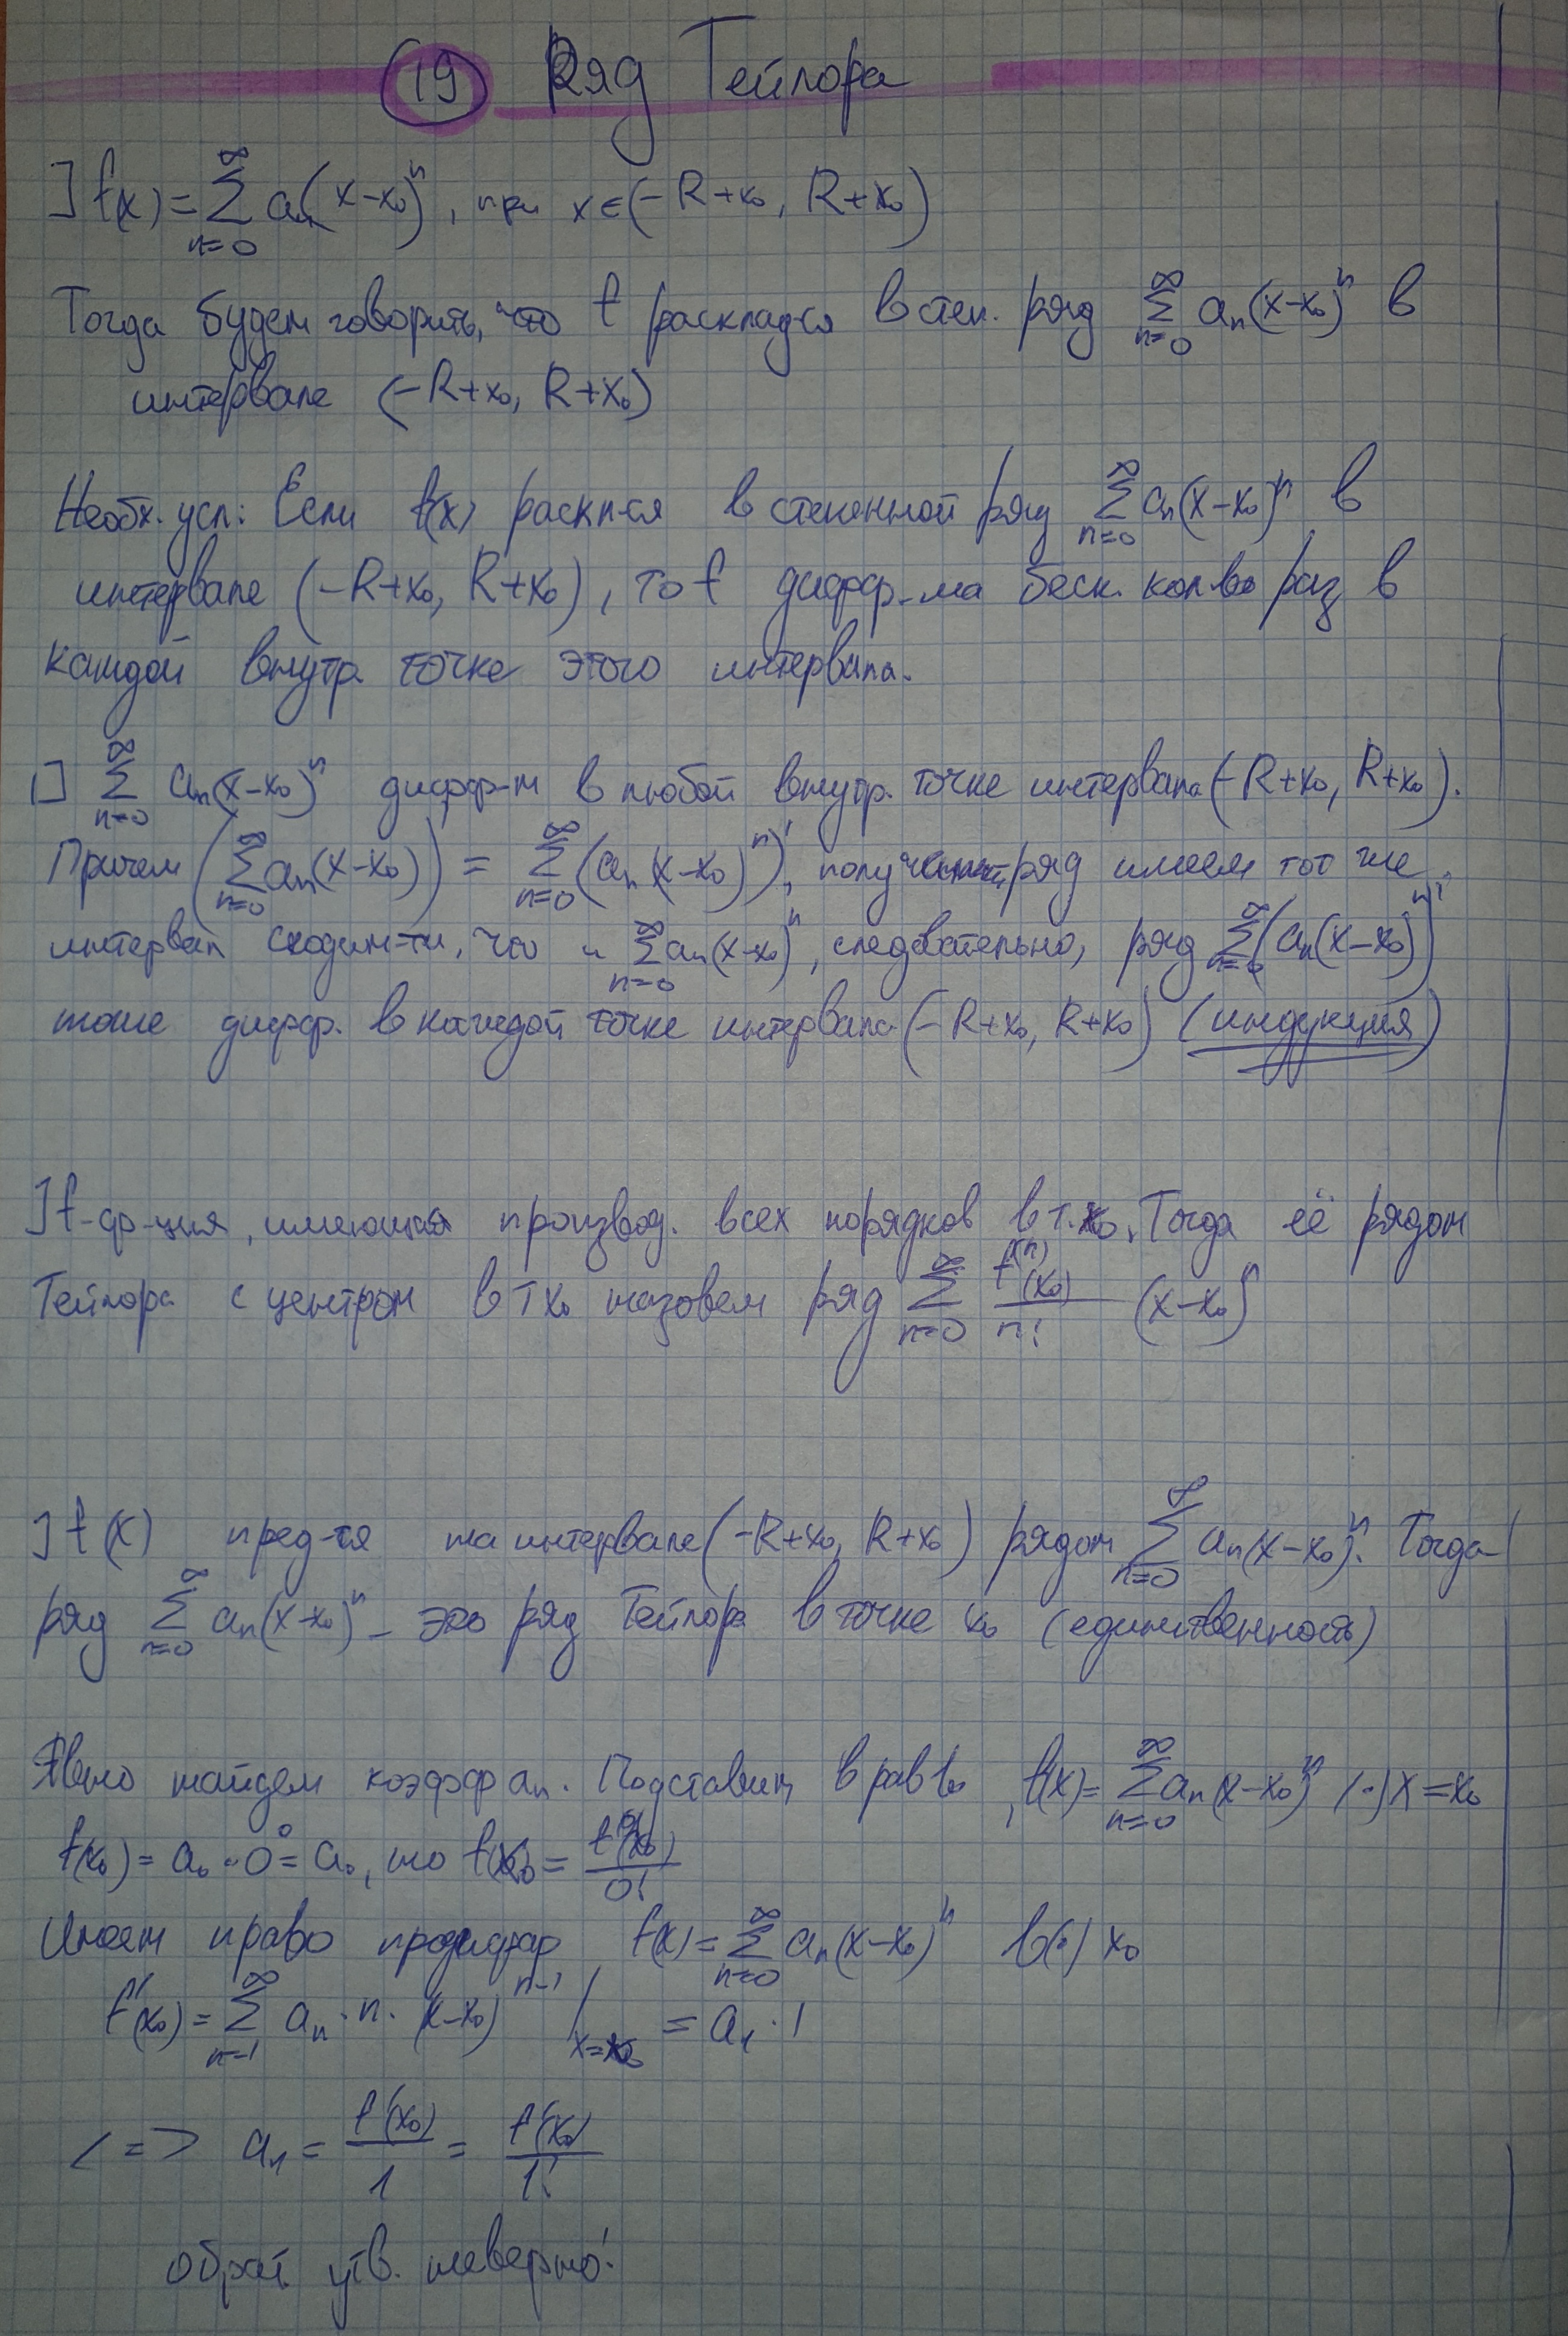 19 Ряд Тейлора
] f(x) = ∑_{n=0}^{∞} a_n(x-x₀)^n, при x∈(-R+x₀, R+x₀)
Тогда будем говорить, что f расклад-ся в степ. ряд ∑_{n=0}^{∞} a_n(x-x₀)^n в
интервале (-R+x₀, R+x₀)
Необх. усл: Если f(x) раскл-ся в степенной ряд ∑_{n=0}^{∞} a_n(x-x₀)^n в
интервале (-R+x₀, R+x₀), то f дифф-ма беск. кол-во раз в
каждой внутр. точке этого интервала.
[] ∑_{n=0}^{∞} a_n(x-x₀)^n дифф-м в любой внутр. точке интервала (-R+x₀, R+x₀).
Причем (∑_{n=0}^{∞} a_n(x-x₀))' = ∑_{n=0}^{∞} (a_n(x-x₀)^n)', ряд имеем тот же
интервал сходим-ти, что и ∑_{n=0}^{∞} a_n(x-x₀)^n, следовательно, ряд ∑_{n=0}^{∞} (a_n(x-x₀)^n)'
тоже дифф. в каждой точке интервала (-R+x₀, R+x₀) (индукция)
] f-ф-ция, имеющая производ. всех порядков в т. x₀. Тогда её рядом
Тейлора с центром в т x₀ назовем ряд ∑_{n=0}^{∞} f^{(n)}(x₀)/n! (x-x₀)^n
] f(x) пред-тся на интервале (-R+x₀, R+x₀) рядом ∑_{n=0}^{∞} a_n(x-x₀)^n. Тогда
ряд ∑_{n=0}^{∞} a_n(x-x₀)^n - это ряд Тейлора в точке x₀ (единственность)
Явно найдем коэфф a_n. Подставим в рав-во, f(x) = ∑_{n=0}^{∞} a_n(x-x₀)^n (·) x = x₀
f(x₀) = a₀·0⁰ = a₀, но f(x₀) = f^{(0)}(x₀)/0!
Имеем право продифф f(x) = ∑_{n=0}^{∞} a_n(x-x₀)^n в (·) x₀
f'(x₀) = ∑_{n=1}^{∞} a_n·n·(x-x₀)^{n-1} |_{x=x₀} = a₁·1
<=> a₁ = f'(x₀)/1 = f'(x₀)/1!
обрат. утв. неверно!